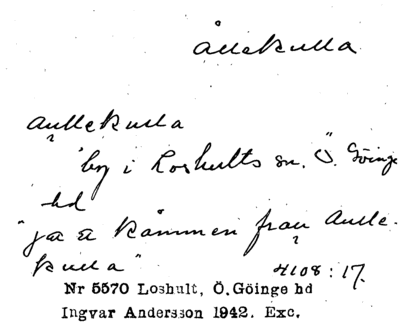 Ållekulla
Aullekulla
by i Loshults sn. Ö. Göinge
hd
"ja æ kåmmen frau Aulle-
kulla" 4108:17.
Nr 5570 Loshult, Ö.Göinge hd
Ingvar Andersson 1942. Exc.